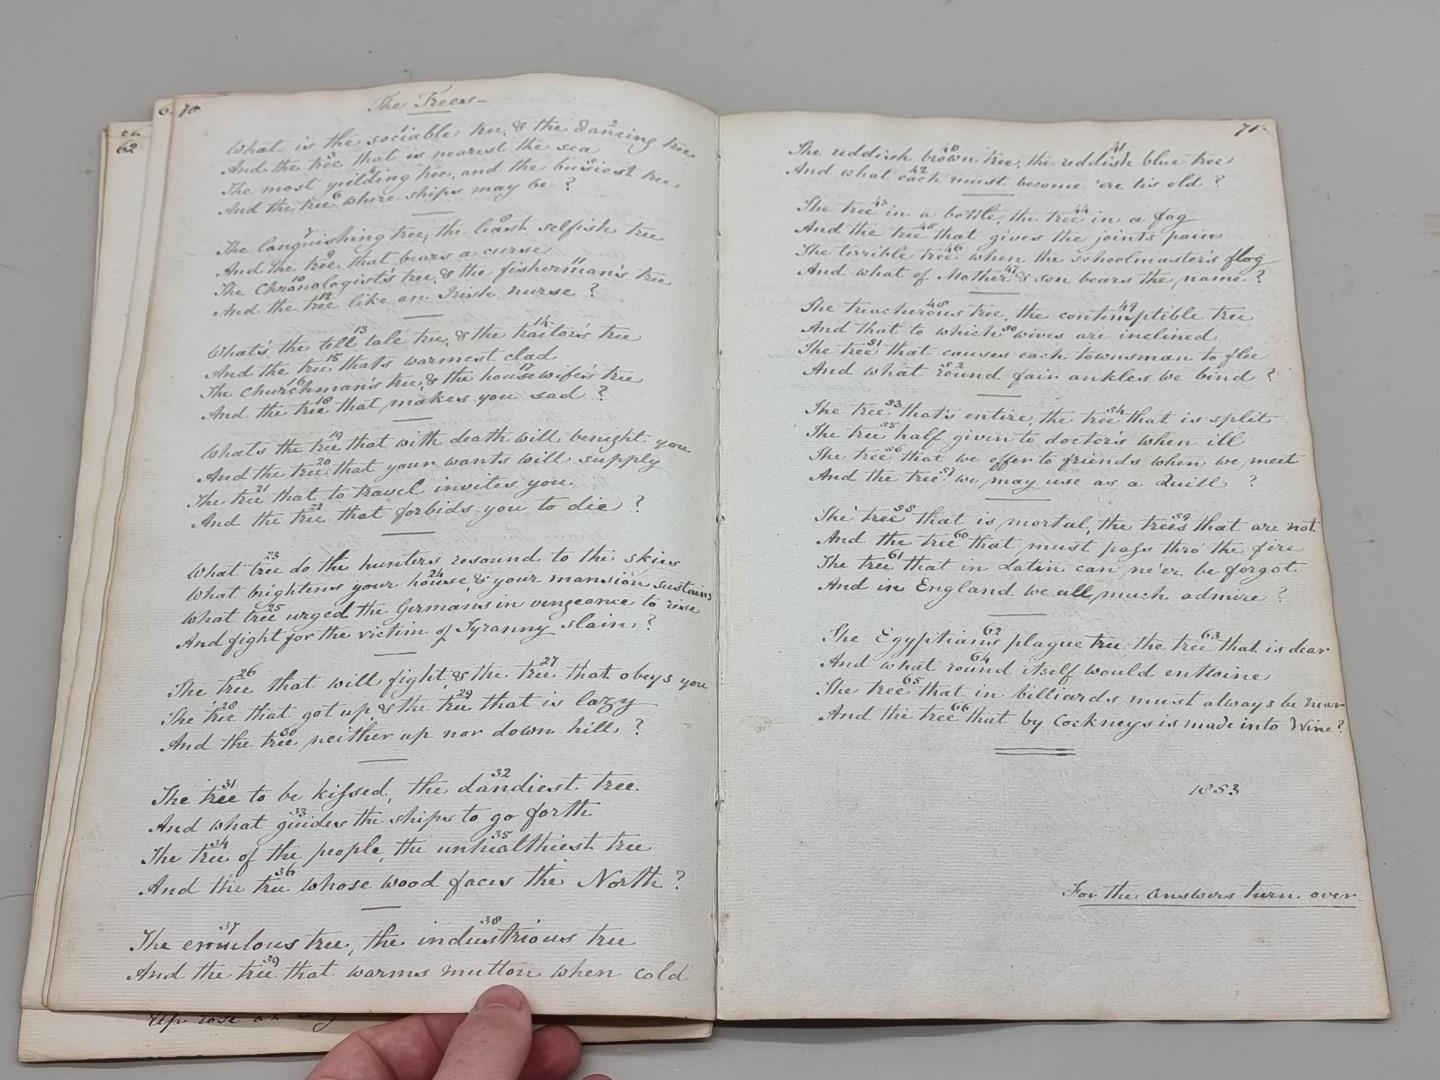 62
70
The Trees
What is the sociable tree, & the dancing tree
And the tree that is nearest the sea
The most yielding tree, and the busiest tree
And the tree where ships may be?
The languishing tree, the least selfish tree
And the tree that bears a curse
The Chronologist's tree, & the fisherman's tree
And the tree like an Irish nurse?
What's the tell tale tree, & the traitor's tree
And the tree that's warmest clad
The churchman's tree, & the housewife's tree
And the tree that makes you sad?
Whats the tree that with death will benight you
And the tree that your wants will supply
The tree that to travel invites you
And the tree that forbids you to die?
What tree do the hunters resound to the skies
What brightens your house & your mansion sustains
What tree urged the Germans in vengeance to rise
And fight for the victim of Tyranny slain?
The tree that will fight, & the tree that obeys you
The tree that got up, & the tree that is lazy
And the tree neither up nor down hill?
The tree to be kissed, the dandiest tree
And what guides the ships to go forth
The tree of the people, the unhealthiest tree
And the tree whose wood faces the North?
The emulous tree, the industrious tree
And the tree that warms mutton when cold
Up rose an
71
The reddish brown tree, the reddish blue tree
And what each must become 'ere tis old?
The tree in a bottle, the tree in a fog
And the tree that gives the joints pain
The terrible tree when the schoolmaster's flog
And what of Mother & son bears the name?
The treacherous tree, the contemptible tree
And that to which wives are inclined
The tree that causes each townsman to flee
And what round fair ankles we bind?
The tree that's entire, the tree that is split
The tree half given to doctors when ill
The tree that we offer to friends when we meet
And the tree we may use as a Quill?
The tree that is mortal, the trees that are not
And the tree that must pass thro' the fire
The tree that in Latin can ne'er be forgot
And in England we all much admire?
The Egyptian's plague tree the tree that is dear
And what round itself would entwine
The tree that in billiards must always be near
And the tree that by Cockneys is made into Wine?
1853
For the answers turn over